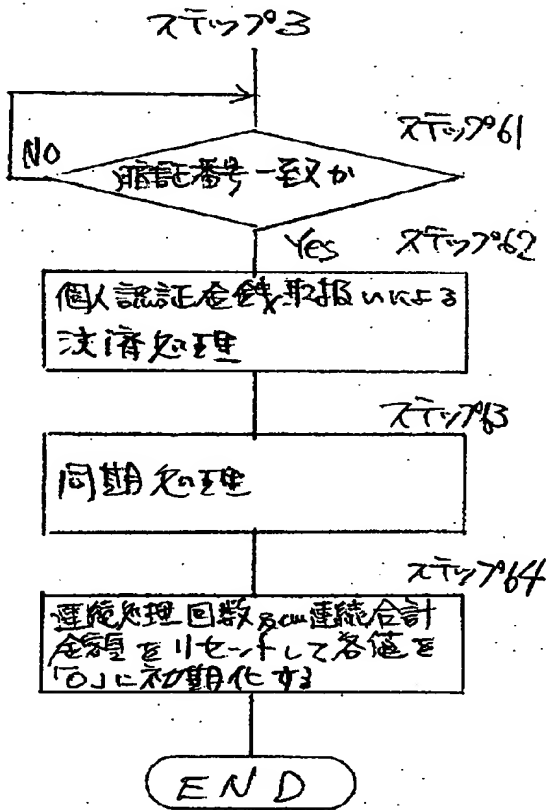 ステップ3
ステップ61
NO
暗証番号一致か
Yes
ステップ62
個人認証金銭取扱いによる
決済処理
ステップ63
同期処理
ステップ64
連続処理回数及び連続合計
金額をリセットして各値を
「0」に初期化する
END